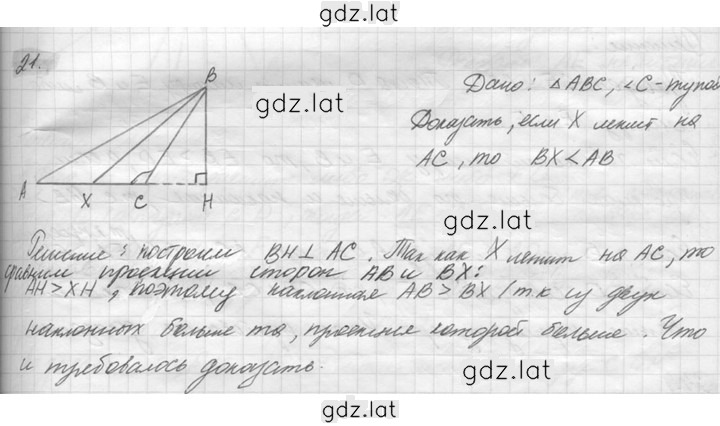 gdz.lat
21.
B
A X C H
gdz.lat
Дано: △ABC, ∠C - тупой
Доказать, если X лежит на
AC, то BX < AB
gdz.lat
Решение: построим BH ⊥ AC. Так как X лежит на AC, то
сравним проекции сторон AB и BX:
AH > XH, поэтому наклонная AB > BX / т к из двух
наклонных больше та, проекция которой больше. Что
и требовалось доказать.
gdz.lat
gdz.lat